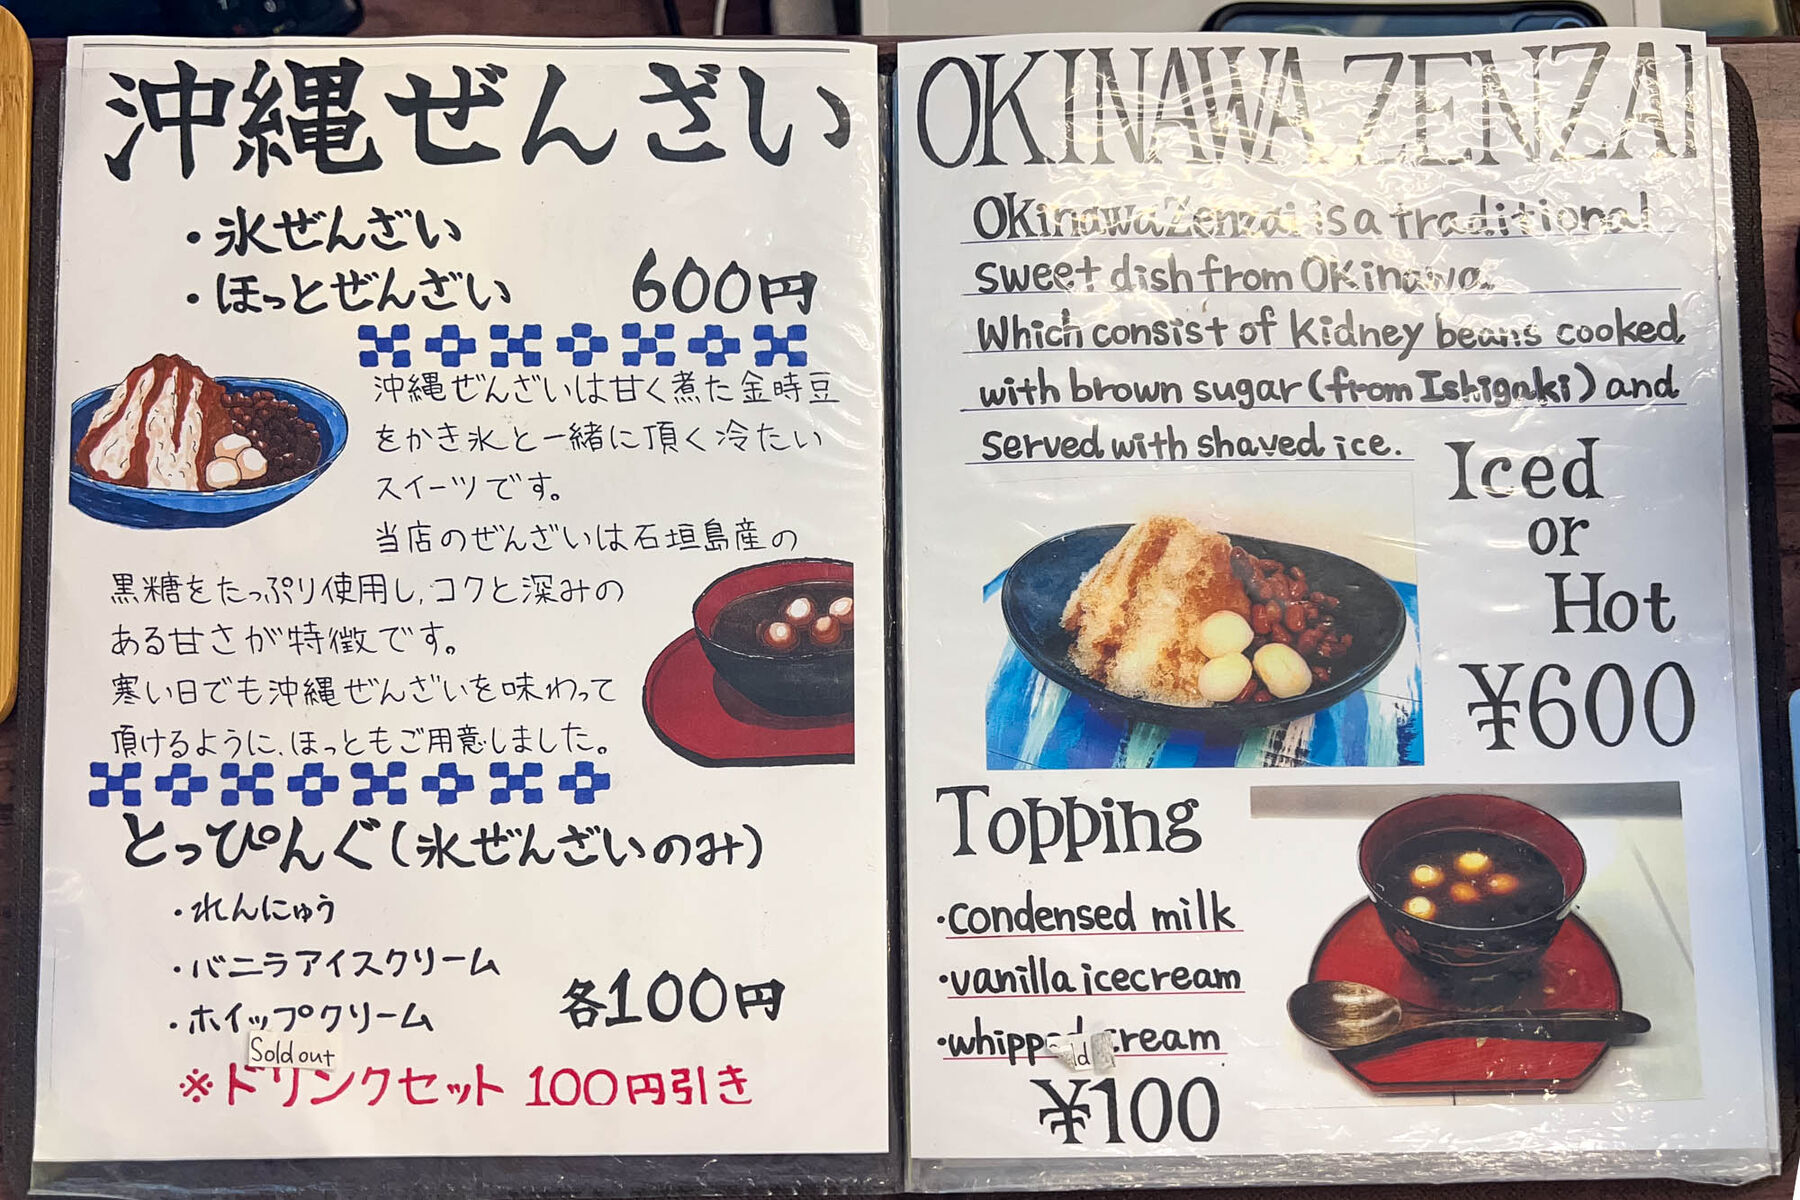 沖縄ぜんざい
・氷ぜんざい
・ほっとぜんざい 600円
沖縄ぜんざいは甘く煮た金時豆
をかき氷と一緒に頂く冷たい
スイーツです。
当店のぜんざいは石垣島産の
黒糖をたっぷり使用し、コクと深みの
ある甘さが特徴です。
寒い日でも沖縄ぜんざいを味わって
頂けるように、ほっともご用意しました。
とっぴんぐ(氷ぜんざいのみ)
・れんにゅう
・バニラアイスクリーム
・ホイップクリーム
各100円
Sold out
※ドリンクセット 100円引き
OKINAWA ZENZAI
Okinawa Zenzai is a traditional
sweet dish from Okinawa.
Which consist of kidney beans cooked
with brown sugar (from Ishigaki) and
served with shaved ice.
Iced
or
Hot
¥600
Topping
・condensed milk
・vanilla icecream
・whipped cream
¥100